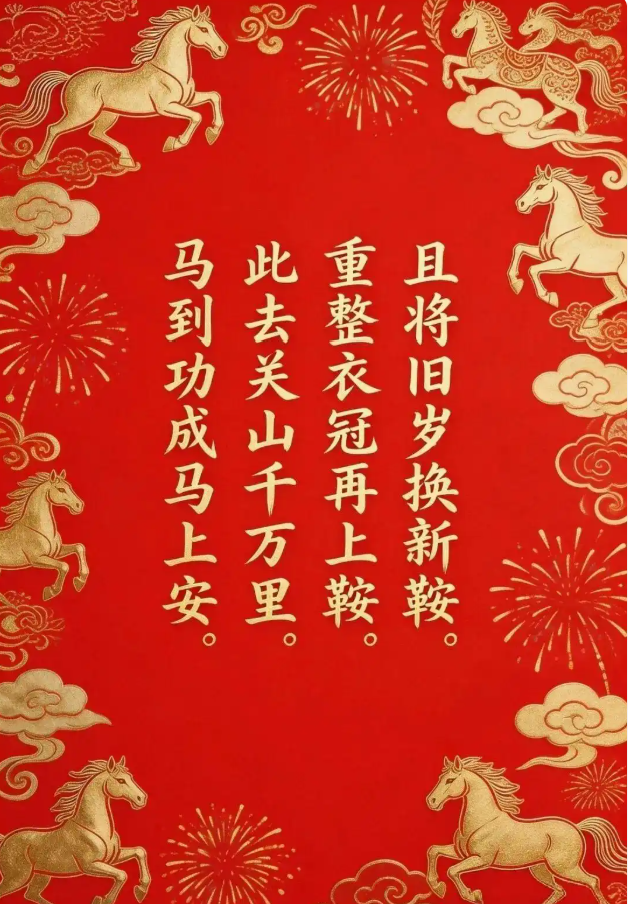 且将旧岁换新鞍。
重整衣冠再上鞍。
此去关山千万里。
马到功成马上安。